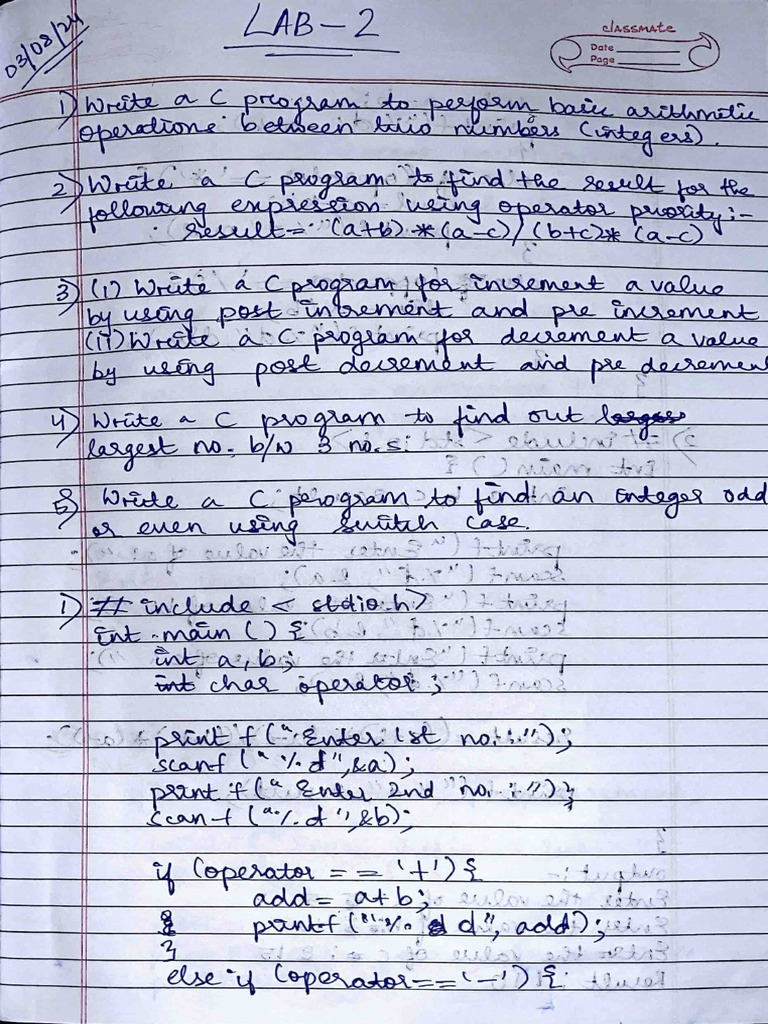 03/08/24
LAB-2
classmate
Date
Page
1) Write a C program to perform basic arithmetic
operations between two numbers (integers).
2) Write a C program to find the result for the
following expression using operator priority:-
result = (a+b) * (a-c) / (b+c) * (a-c)
3) (i) Write a C program for increment a value
by using post increment and pre increment
(ii) Write a C program for decrement a value
by using post decrement and pre decrement
4) Write a C program to find out
largest no. b/w 3 no.s.
5) Write a C program to find an integer odd
or even using switch case.
1) # include < stdio.h>
int main () {
int a, b;
int char operator ;
printf ("Enter 1st no.:");
scanf ("%d",&a);
printf ("Enter 2nd no.:");
scanf ("%d",&b);
if (operator == '+') {
add = a+b;
printf ("% d", add);
}
else if (operator == '-') {